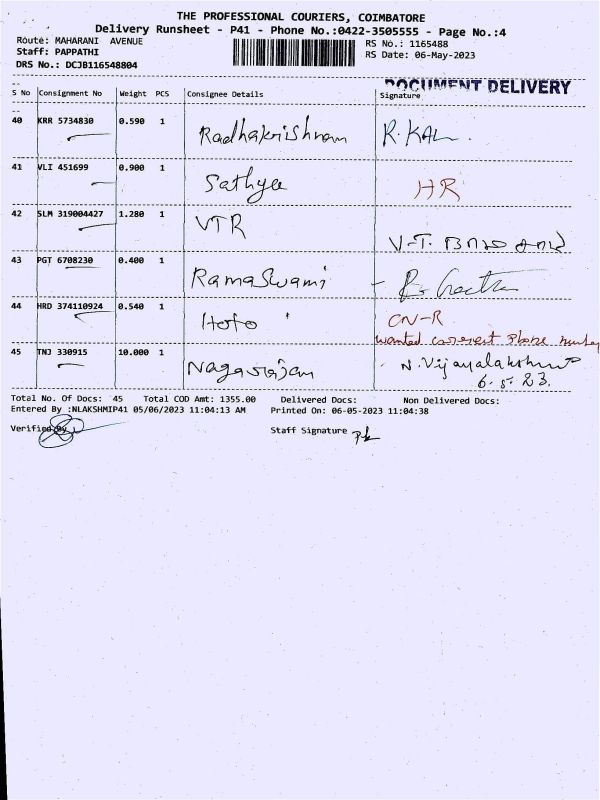 THE PROFESSIONAL COURIERS, COIMBATORE
Delivery Runsheet - P41 - Phone No.:0422-3505555 - Page No.:4
Route: MAHARANI AVENUE
RS No.: 1165488
Staff: PAPPATHI
RS Date: 06-May-2023
DRS No.: DCJB116548804
DOCUMENT DELIVERY
S No Consignment No Weight PCS Consignee Details Signature
40 KRR 5734830 0.590 1 Radhakrishnan R.KAL
41 VLI 451699 0.900 1 Sathya HR
42 SLM 319004427 1.280 1 VTR V-T.
43 PGT 6708230 0.400 1 RamaSwami
44 HRD 374110924 0.540 1 CN-R
wanted correct Phone number
45 TNJ 330915 10.000 1 Nagarajan N.Vijayalakshmi
6.5.23.
Total No. Of Docs: 45 Total COD Amt: 1355.00 Delivered Docs: Non Delivered Docs:
Entered By :NLAKSHMIP41 05/06/2023 11:04:13 AM Printed On: 06-05-2023 11:04:38
Verified By Staff Signature